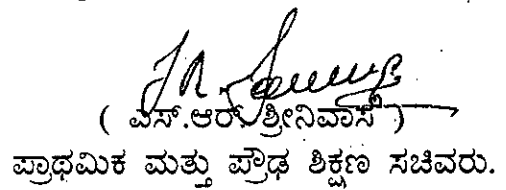 ( ಎಸ್.ಆರ್.ಶ್ರೀನಿವಾಸ್ )
ಪ್ರಾಥಮಿಕ ಮತ್ತು ಪ್ರೌಢ ಶಿಕ್ಷಣ ಸಚಿವರು.